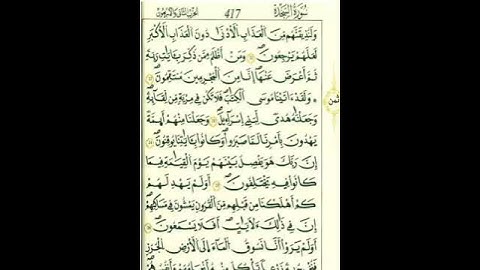 سُورَةُ السَّجْدَةِ
417
الحزب الثاني والأربعون
وَلَنُذِيقَنَّهُم مِّنَ اَلْعَذَابِ اِلَادْنٰى دُونَ اَلْعَذَابِ اِلَاكْبَرِ
لَعَلَّهُمْ يَرْجِعُونَ وَمَنَ اَظْلَمُ مِمَّن ذُكِّرَ بِـَٔايَٰتِ رَبِّهِۦ
ثُمَّ أَعْرَضَ عَنْهَآ إِنَّا مِنَ اَلْمُجْرِمِينَ مُنتَقِمُونَ
وَلَقَدَ اٰتَيْنَا مُوسَى اَلْكِتَٰبَ فَلَا تَكُن فِي مِرْيَةٍ مِّن لِّقَآئِهِۦ
ثمن
وَجَعَلْنَٰهُ هُدًى لِّبَنِي إِسْرَآءِيلَ وَجَعَلْنَا مِنْهُمُۥٓ أَئِمَّةً
يَهْدُونَ بِأَمْرِنَا لَمَّا صَبَرُواْ وَكَانُواْ بِـَٔايَٰتِنَا يُوقِنُونَ
إِنَّ رَبَّكَ هُوَ يَفْصِلُ بَيْنَهُمْ يَوْمَ اَلْقِيَٰمَةِ فِيمَا
كَانُواْ فِيهِ يَخْتَلِفُونَ أَوَلَمْ يَهْدِ لَهُمْ
كَمَ اَهْلَكْنَا مِن قَبْلِهِم مِّنَ اَلْقُرُونِ يَمْشُونَ فِي مَسَٰكِنِهِمُۥٓ
إِنَّ فِي ذَٰلِكَ لَأٓيَٰتٍ اَفَلَا يَسْمَعُونَ
أَوَلَمْ يَرَوَاْ اَنَّا نَسُوقُ اَلْمَآءَ إِلَى اَلَارْضِ اِلْجُرُزِ
فَنُخْرِجُ بِهِۦ زَرْعًا تَاكُلُ مِنْهُ أَنْعَٰمُهُمْ وَأَنفُسُهُمُۥٓ